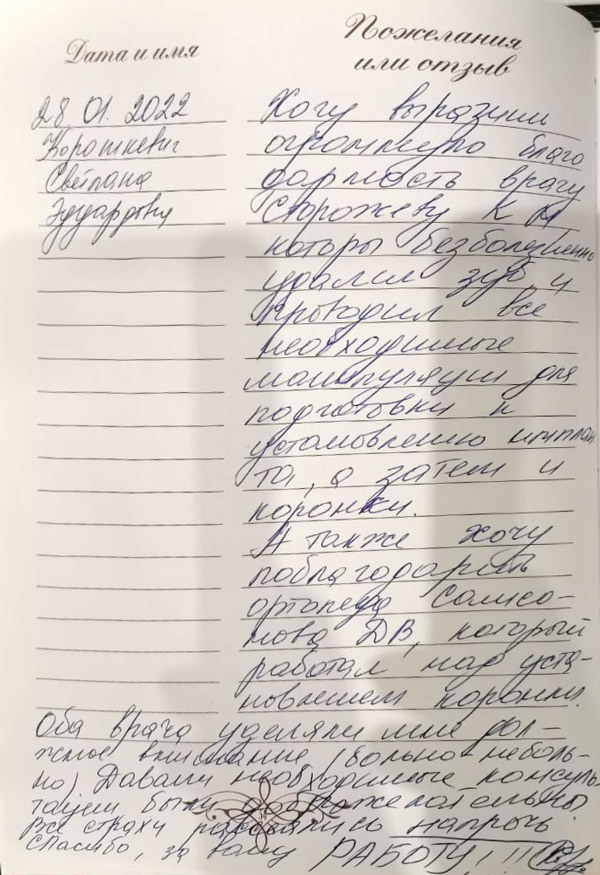 Дата и имя
Пожелания
или отзыв
28.01.2022
Корошкевич
Светлана
Эдуардовна
Хочу выразить
огромную благо
дарность врачу
Сторожеву К М
которы безболезненно
удалил зуб и
проводил все
необходимые
манипуляции для
подготовки к
установлению имплан
та, а затем и
коронки.
А также хочу
поблагодарить
ортопеда Самсо-
нова ДВ, который
работал над уста-
новлением коронки.
Оба врача уделяли мне дол-
жное внимание (больно-неболь-
но) Давали необходимые консуль-
тации были доброжелательны.
Все страхи рассеялись напрочь.
Спасибо, за вашу РАБОТУ!!!